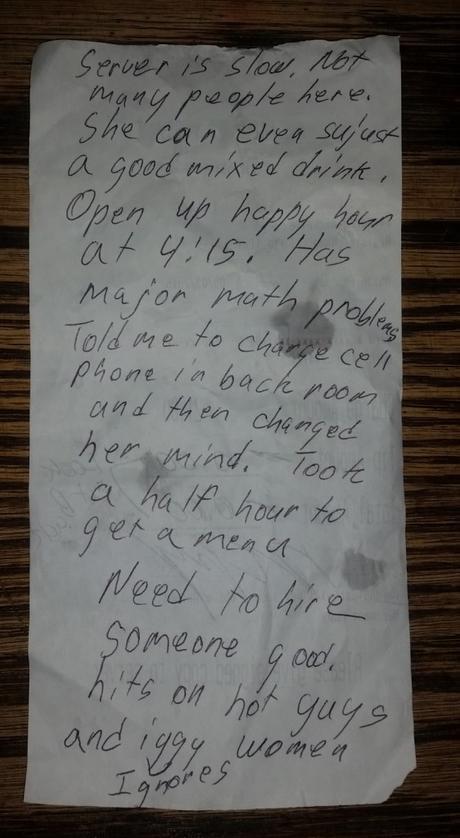 Server is slow. Not
many people here.
She can even sujust
a good mixed drink.
Open up happy hour
at 4:15. Has
major math problems
Told me to charge cell
phone in back room
and then changed
her mind. Took
a half hour to
get a menu
Need to hire
someone good.
hits on hot guys
and iggy women
Ignores